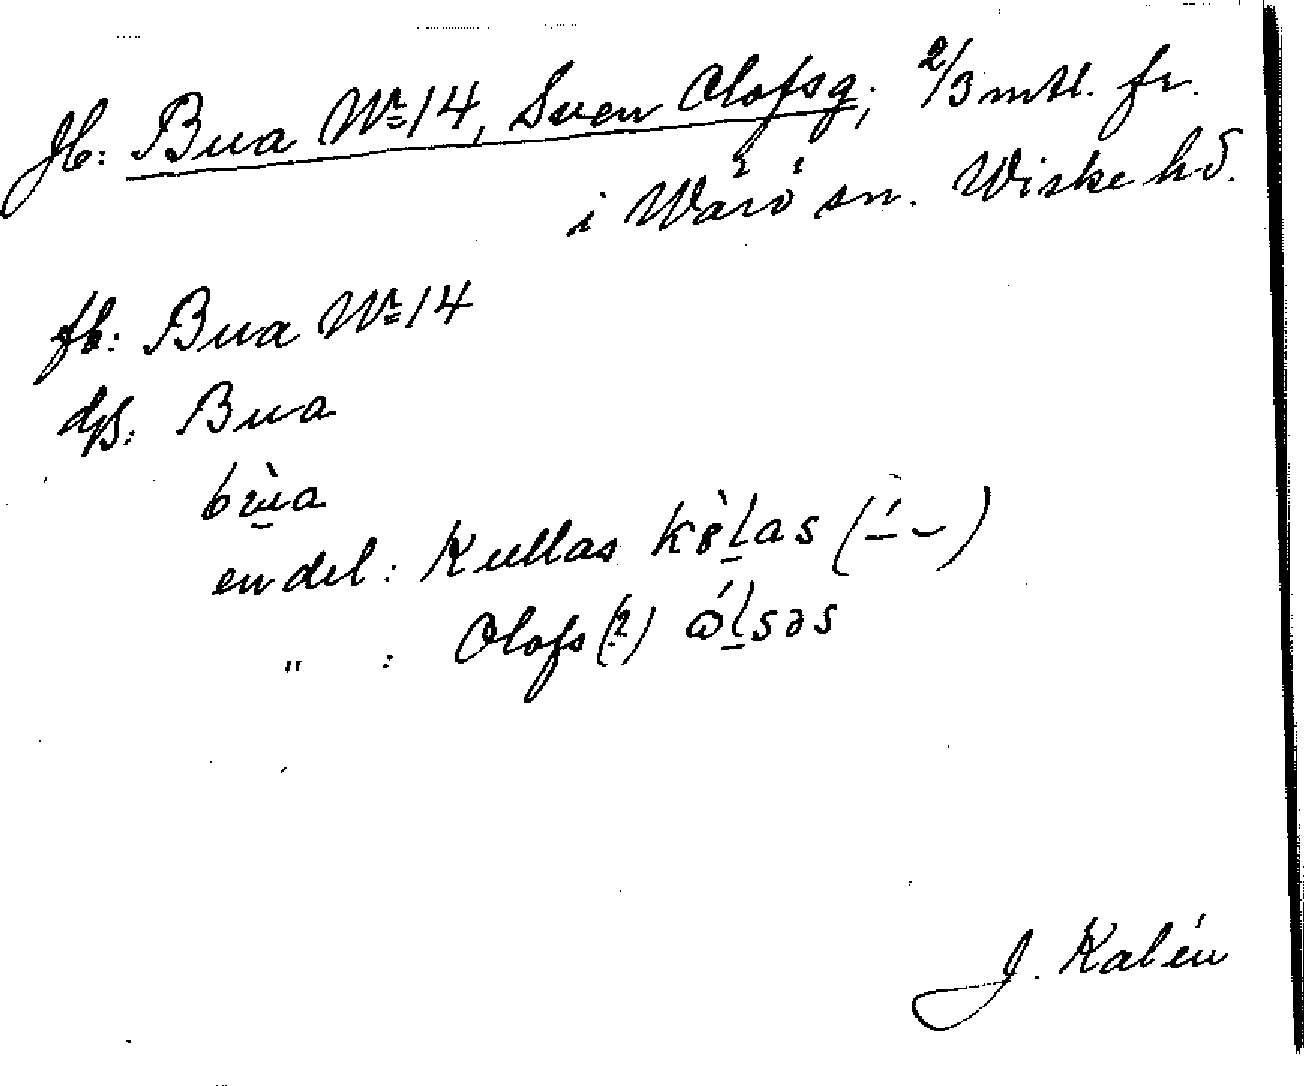 Jb: Bua Nr 14, Sven Olofsg; 2/3 mtl. fr.
i Wärö sn. Wiske hd.
fb: Bua Nr 14
dps: Bua
bùa
en del: Kullas kòlas (–́ ⏑)
" : Olofs (?) ólsəs
J. Kalén